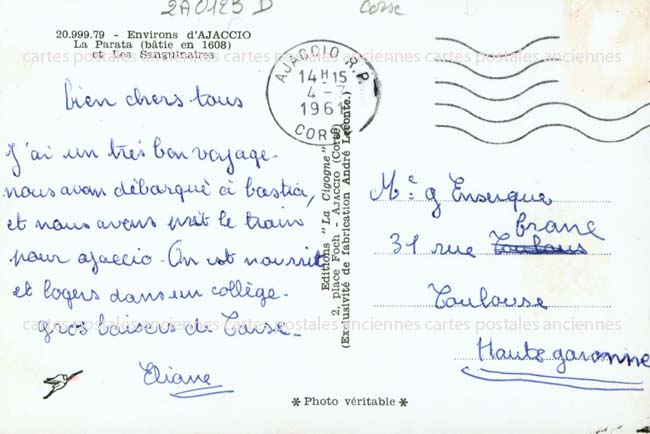 2A0123 D
Corse
20.999.79 - Environs d'AJACCIO
La Parata (bâtie en 1608)
et Les Sanguinaires
cartes postales anciennes cartes postales anciennes cartes postales anciennes
AJACCIO R.P.
14H15
4-7
196
CORSE
bien chers tous
J'ai un très bon voyage.
nous avon débarqué à bastia,
et nous avons prit le train
pour ajaccio. On est nourrit
et logers dans un collège.
gros baisers de Corse.
Eliane
Editions "La Cigogne"
2, place Foch - AJACCIO (Corse)
(Exclusivité de fabrication André Leconte.)
Me g Enseuque
branc
31 rue
Toulouse
Haute garonne
cartes postales anciennes cartes postales anciennes cartes postales anciennes
* Photo véritable *